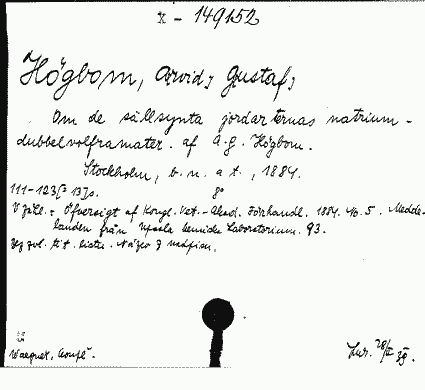 I - 149152
Högbom, Arvid, Gustaf,
Om de sällsynta jordarternas natrium-
dubbelvolframater. af A. G. Högbom.
Stockholm, b. n. a t., 1884.
111-123 [= 13] s. 8°
V záhl.: Öfversigt af Kongl. Vet.-Akad. Förhandl. 1884. No. 5. Medde-
landen från Upsala kemiska Laboratorium. 93.
Bez zvl. tit. listu. Název z nadpisu.
Waegner, koupě.